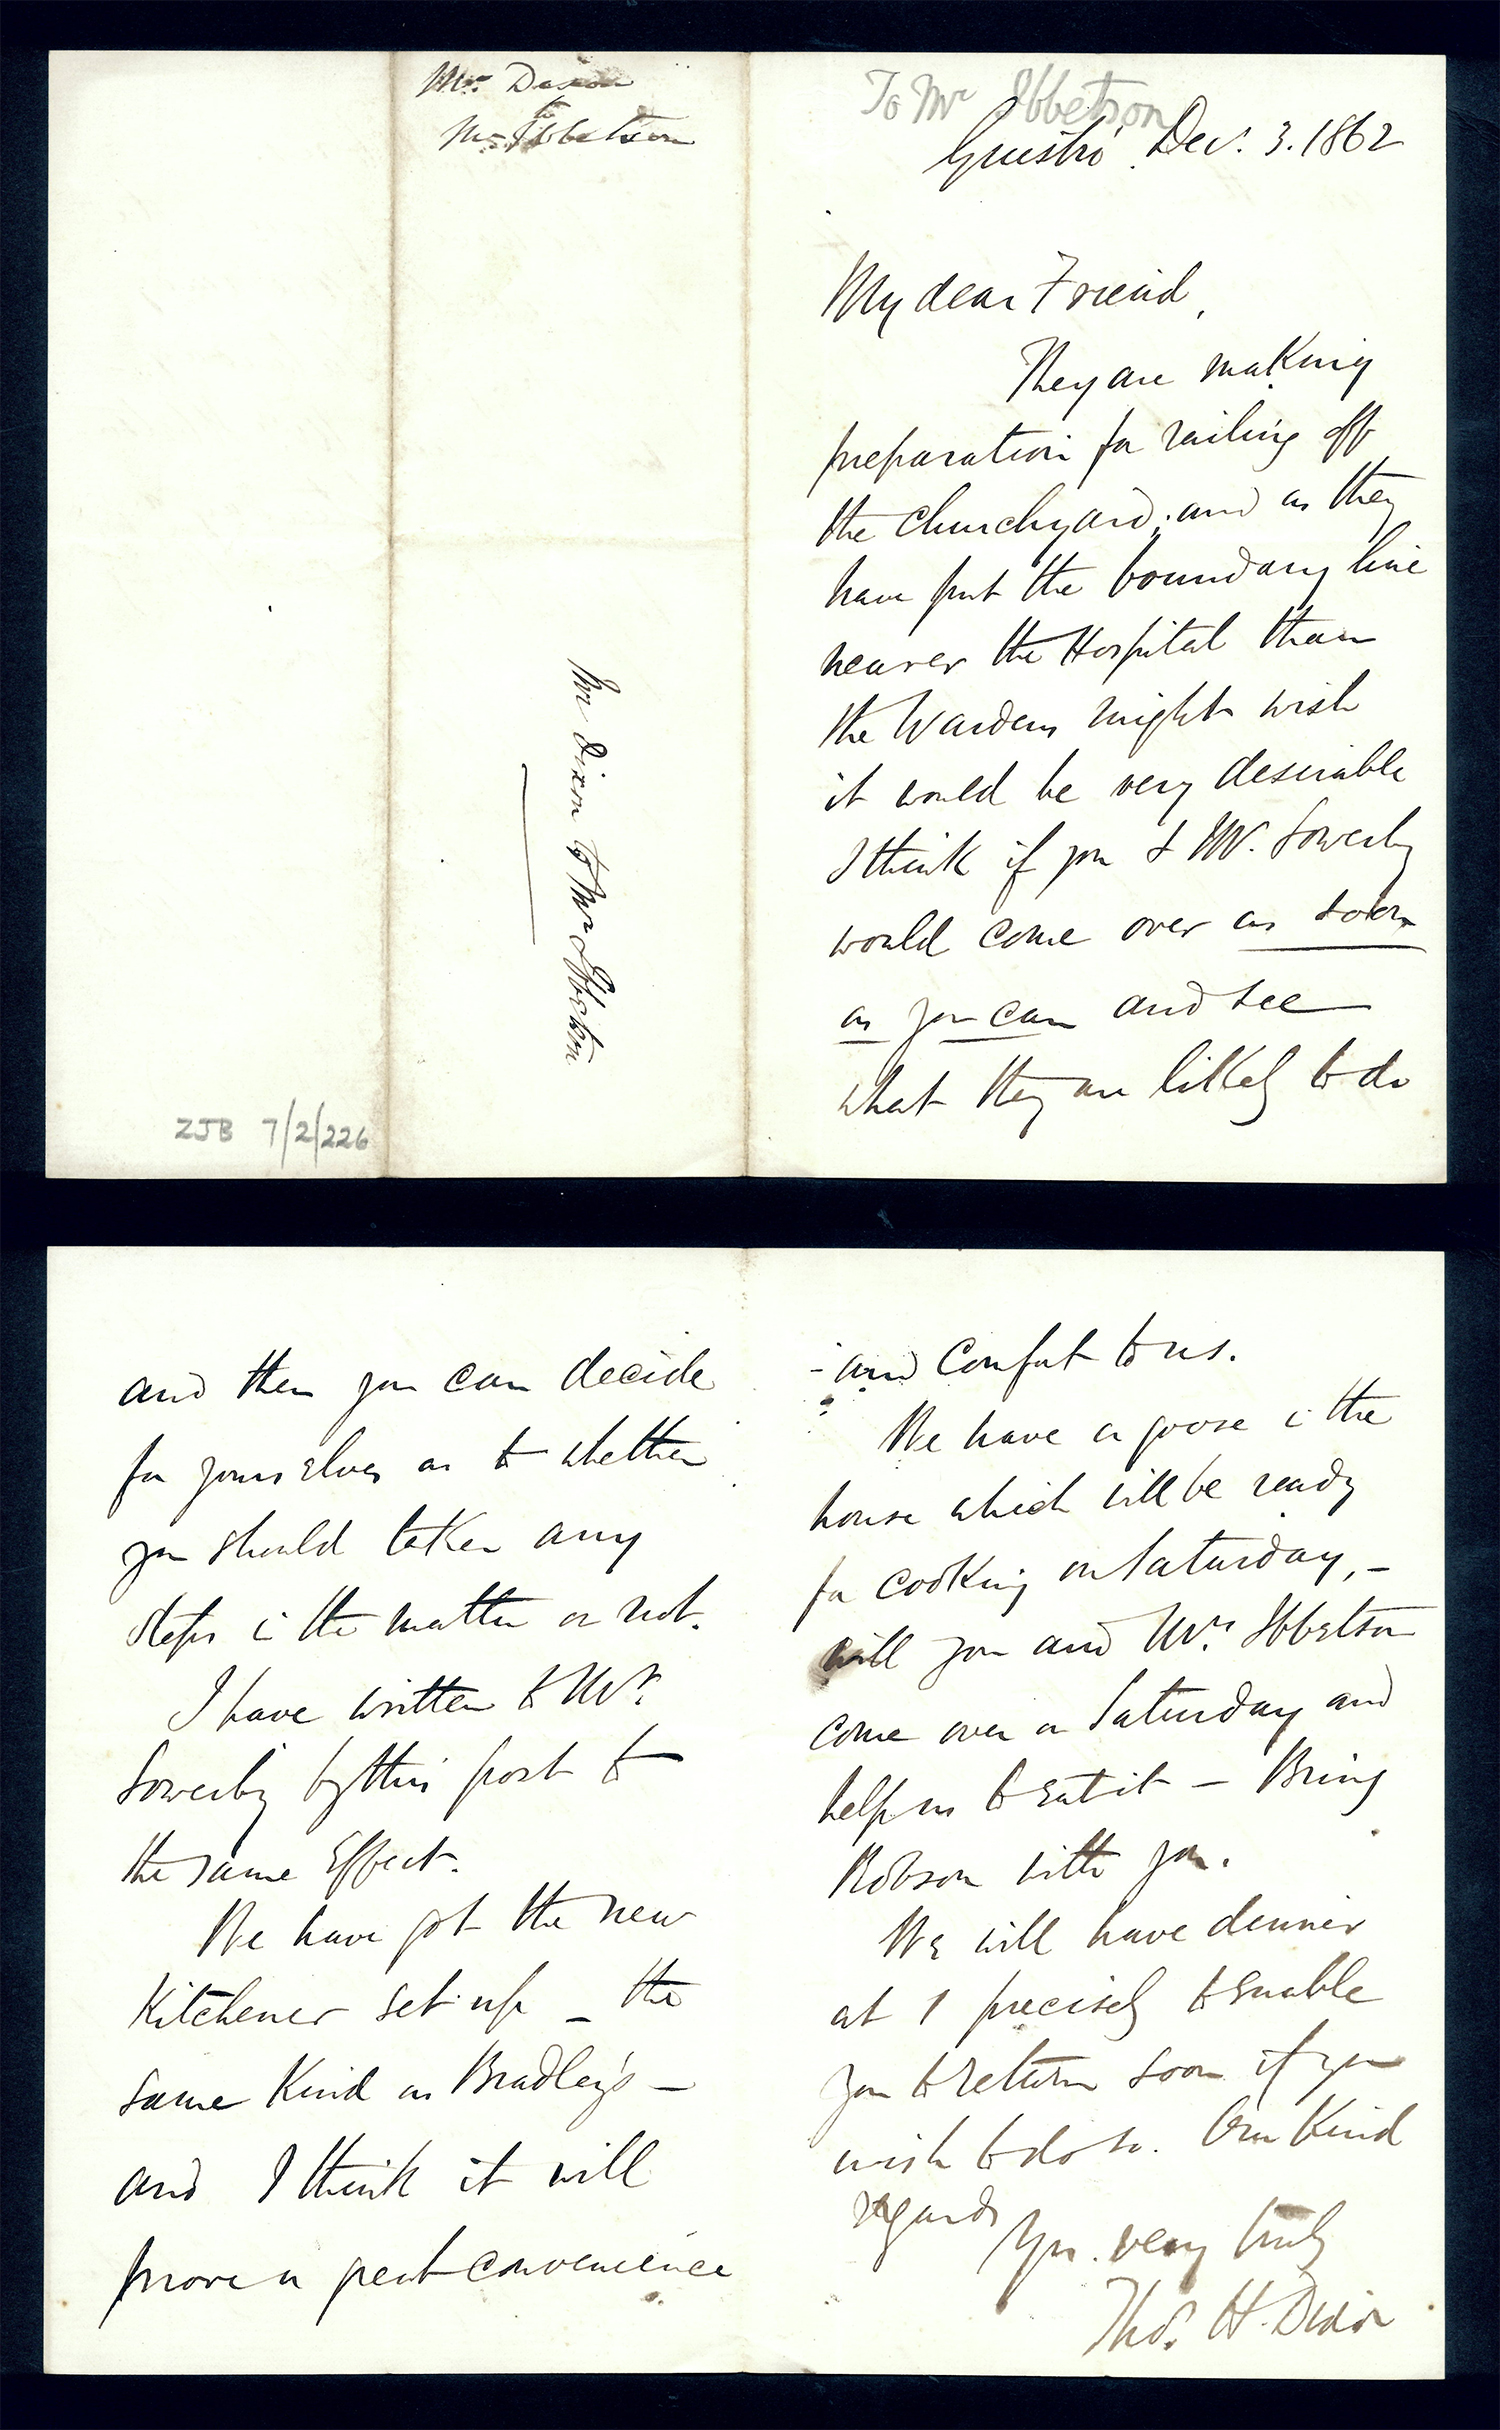 Mr. Dixon
to
Mr Ibbetson
Mr Dixon to Mr Ibbetson
ZJB 7/2/226
To Mr Ibbetson
Dec. 3. 1862
My dear Friend,
They are making
preparation for railing off
the Churchyard; and as they
have put the boundary line
nearer the Hospital than
the Wardens might wish
it would be very desirable
I think if you & Mr. Sowerby
would come over as soon
as you can and see
what they are likkely to do
and then you can decide
for yourselves as to whether
you should taken any
steps i the matter or not.
I have written to Mr.
Sowerby by this post to
the same Effect.
We have got the new
Kitchener set up - the
same Kind as Bradley's -
and I think it will
prove a great convenience
- and Comfort to us.
We have a goose i the
house which will be ready
for cooking on Saturday, -
will you and Mrs. Ibbetson
come over on Saturday and
help us to Eat it - Bring
Robson with you.
We will have dinner
at 1 precisely to Enable
you to return soon if you
wish to do so. Our Kind
regards
Yrs. very truly
Thos. H. Dixon